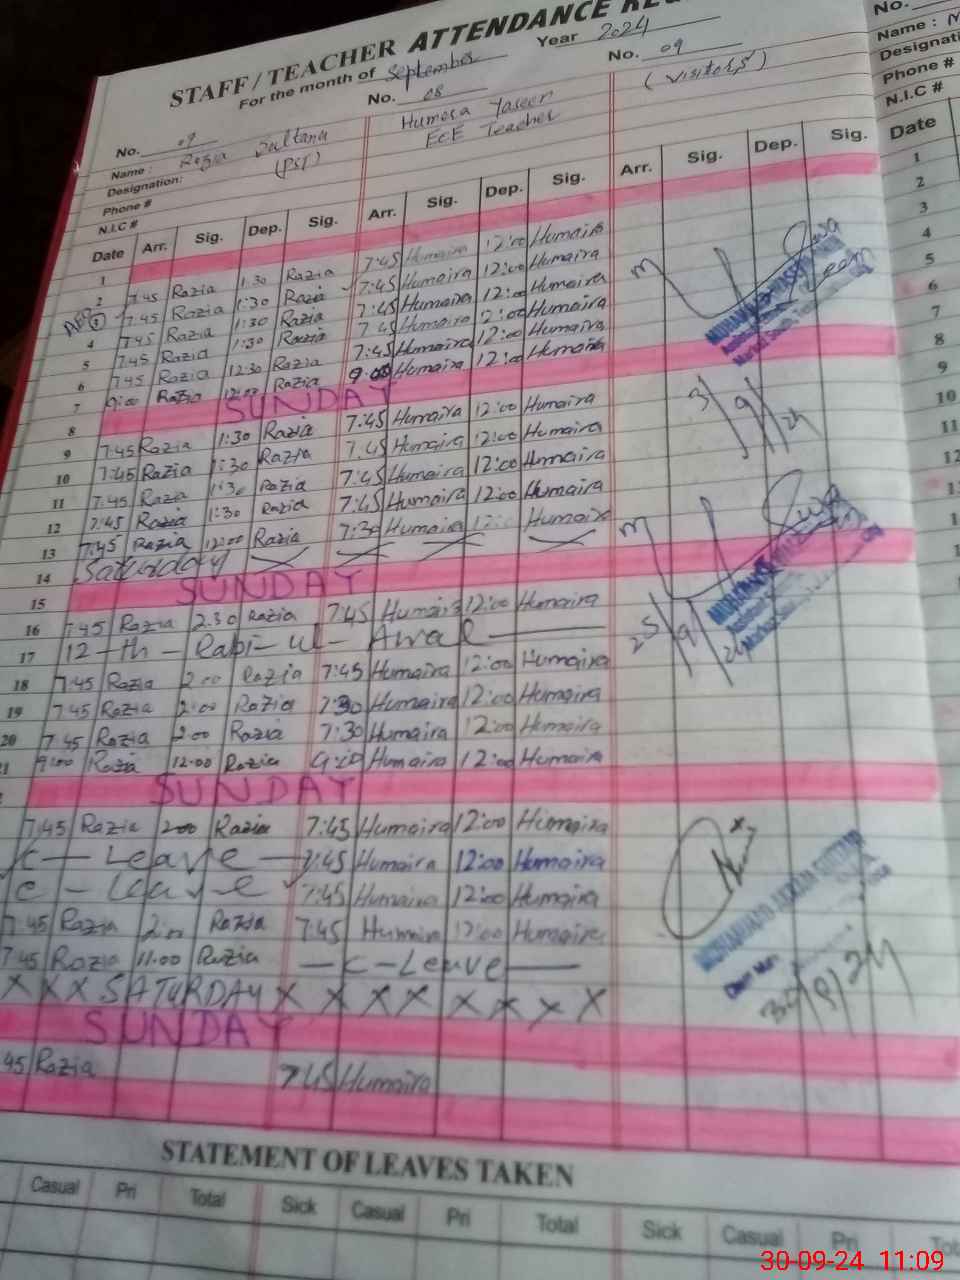 STAFF / TEACHER ATTENDANCE
For the month of September Year 2024
No. 09 No. 08 No. 09
Name : Razia Sultana Humera Yaseen (visitors)
Designation: (PST) ECE Teacher
Phone #
N.I.C #
Date Arr. Sig. Dep. Sig. Arr. Sig. Dep. Sig. Arr. Sig. Dep. Sig.
1
2 7:45 Razia 1:30 Razia 7:45 Humaira 12:00 Humaira
7:45 Razia 1:30 Razia 7:45 Humaira 12:00 Humaira
4 7:45 Razia 1:30 Razia 7:45 Humaira 12:00 Humaira
5 7:45 Razia 1:30 Razia 7:45 Humaira 12:00 Humaira
6 7:45 Razia 12:30 Razia 7:45 Humaira 12:00 Humaira
7 9:00 Razia 12:00 Razia 9:00 Humaira 12:00 Humaira
8 SUNDAY
9 7:45 Razia 1:30 Razia 7:45 Humaira 12:00 Humaira
10 7:45 Razia 1:30 Razia 7:45 Humaira 12:00 Humaira
11 7:45 Razia 1:30 Razia 7:45 Humaira 12:00 Humaira
12 7:45 Razia 1:30 Razia 7:45 Humaira 12:00 Humaira
13 7:45 Razia 12:00 Razia 7:30 Humaira 12:00 Humaira
14 Saturday
15 SUNDAY
16 7:45 Razia 2:30 Razia 7:45 Humaira 12:00 Humaira
17 12-th-Rabi-ul-Awal
18 7:45 Razia 2:00 Razia 7:45 Humaira 12:00 Humaira
19 7:45 Razia 2:00 Razia 7:30 Humaira 12:00 Humaira
20 7:45 Razia 2:00 Razia 7:30 Humaira 12:00 Humaira
21 9:00 Razia 12:00 Razia 9:00 Humaira 12:00 Humaira
SUNDAY
7:45 Razia 2:00 Razia 7:45 Humaira 12:00 Humaira
C-Leave 7:45 Humaira 12:00 Humaira
C-Leave 7:45 Humaira 12:00 Humaira
7:45 Razia 2:00 Razia 7:45 Humaira 12:00 Humaira
7:45 Razia 11:00 Razia C-Leave
X X X SATURDAY X X X X X X X X
SUNDAY
45 Razia 7:45 Humaira
3/9/24
25/9/24
30/9/24
STATEMENT OF LEAVES TAKEN
Casual Pri Total Sick Casual Pri Total Sick Casual Pri
No.
Name :
Designati
Phone #
N.I.C #
Date
1
2
3
4
5
6
7
8
9
10
11
12
30-09-24 11:09